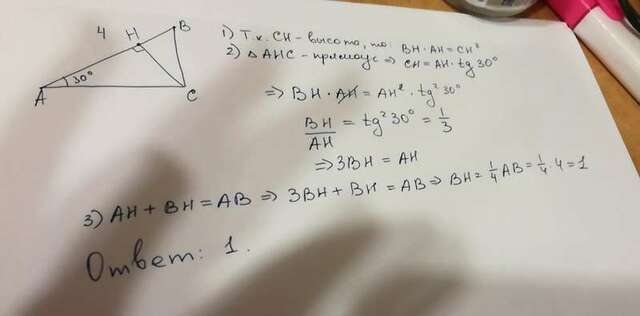 4 H B
30°
A C
1) Т.к. CH – высота, то: BH · AH = CH²
2) △ AHC – прямоуг ⇒ CH = AH · tg 30°
⇒ BH · AH = AH² · tg² 30°
BH/AH = tg² 30° = 1/3
⇒ 3BH = AH
3) AH + BH = AB ⇒ 3BH + BH = AB ⇒ BH = 1/4 AB = 1/4 · 4 = 1
Ответ: 1.